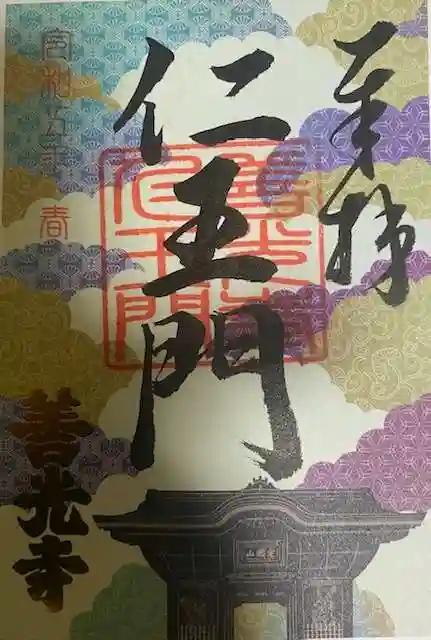 奉拝
仁王門
善光寺
仁王門
令和五年 春
善光寺